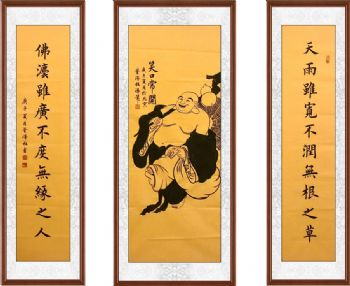 天雨雖寬不潤無根之草
笑口常開
佛灋雖廣不度無緣之人
庚子夏月